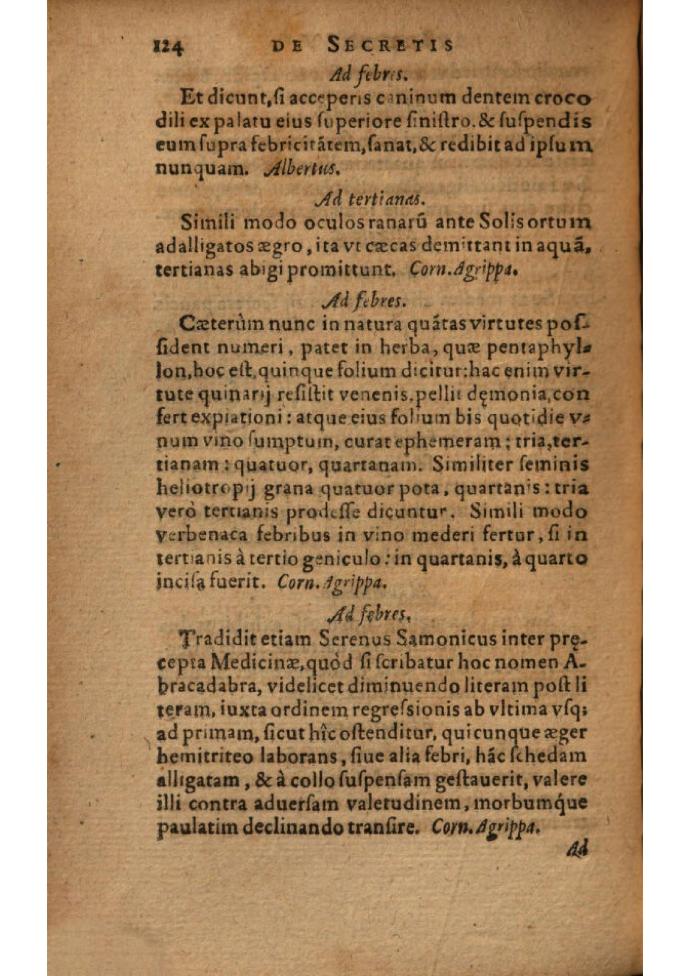 124 DE SECRETIS
Ad febres.
Et dicunt, si acceperis caninum dentem croco
dili ex palatu eius superiore sinistro. & suspendis
eum supra febricitātem, sanat, & redibit ad ipsum
nunquam. Albertus.
Ad tertianas.
Simili modo oculos ranarū ante Solis ortum
adalligatos ægro, ita vt cæcas demittant in aquā,
tertianas abigi promittunt. Corn. Agrippa.
Ad febres.
Cæterùm nunc in natura quātas virtutes pos-
sident numeri, patet in herba, quæ pentaphyl-
lon, hoc est, quinque folium dicitur: hac enim vir-
tute quinarij resistit venenis, pellit dęmonia, con
fert expiationi: atque eius folium bis quotidie v-
num vino sumptum, curat ephemeram: tria, ter-
tianam: quatuor, quartanam. Similiter seminis
heliotropij grana quatuor pota, quartanis: tria
verò tertianis prodesse dicuntur. Simili modo
verbenaca febribus in vino mederi fertur, si in
tertianis à tertio geniculo: in quartanis, à quarto
incisa fuerit. Corn. Agrippa.
Ad febres.
Tradidit etiam Serenus Samonicus inter prę-
cepta Medicinæ, quòd si scribatur hoc nomen A-
bracadabra, videlicet diminuendo literam post li
teram, iuxta ordinem regressionis ab vltima vsq;
ad primam, sicut hîc ostenditur, quicunque æger
hemitriteo laborans, siue alia febri, hāc schedam
alligatam, & à collo suspensam gestauerit, valere
illi contra aduersam valetudinem, morbumq́ue
paulatim declinando transire. Corn. Agrippa.
Ad